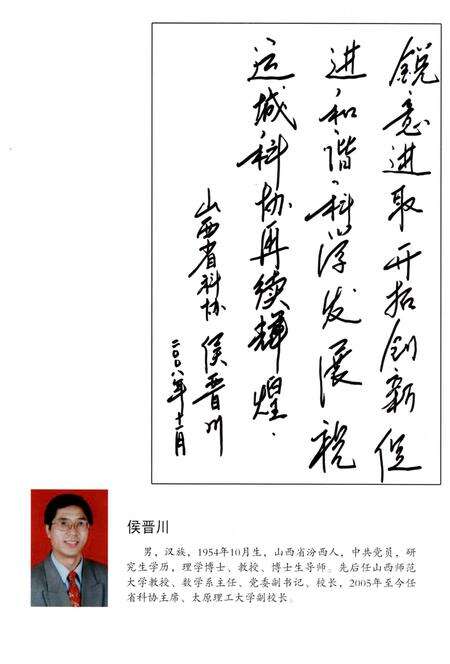 锐意进取开拓创新促
进和谐科学发展祝
运城科协再续辉煌.
山西省科协 侯晋川
二〇〇八年十一月
侯晋川
男，汉族，1954年10月生，山西省汾西人，中共党员，研
究生学历，理学博士、教授、博士生导师。先后任山西师范
大学教授、数学系主任、党委副书记、校长，2005年至今任
省科协主席、太原理工大学副校长。